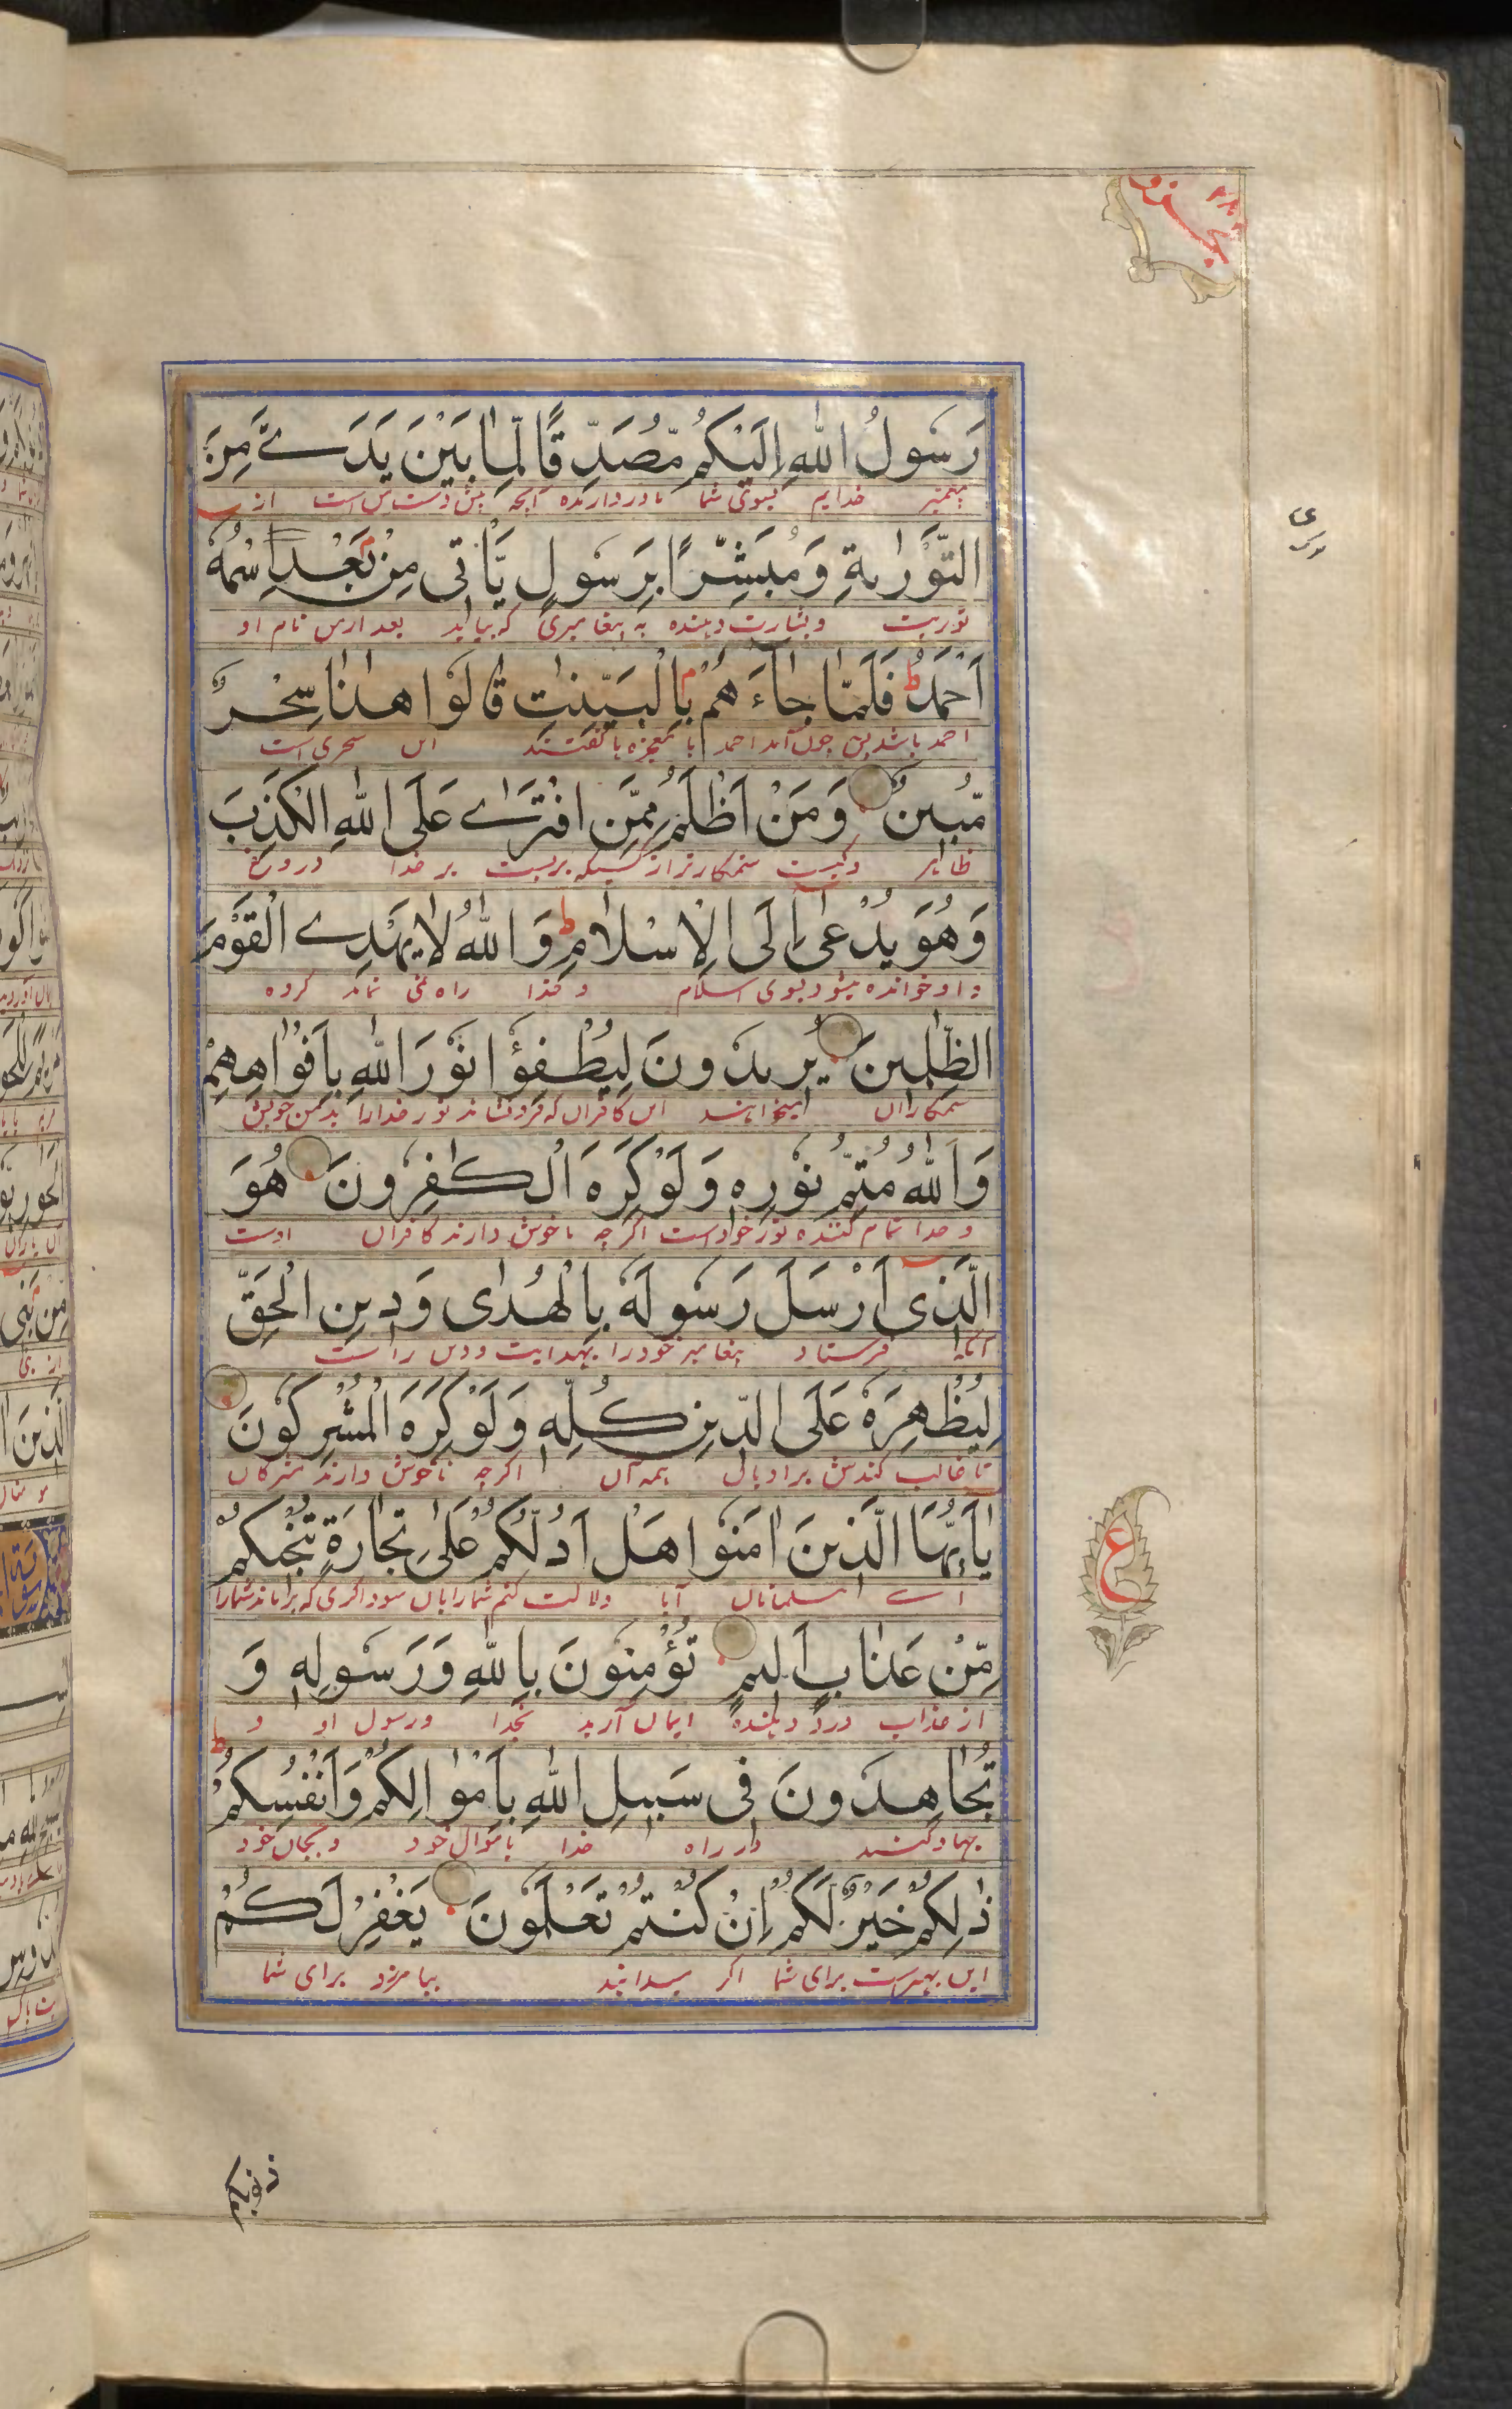 بجزو ٢٨
رَسُولُ اللّٰهِ اِلَيْكُمْ مُّصَدِّقًا لِّمَا بَيْنَ يَدَےَّ مِنَ
خدایم بسوی شما باوردارنده آنچه پیش دست من است از
التَّوْرٰىةِ وَمُبَشِّرًا بِرَسُولٍ يَّأْتِى مِنْ بَعْدِى اسْمُهٗ
توریت و بشارت دهنده به پیغامبری که بیاید بعد از من نام او
اَحْمَدُ ط فَلَمَّا جَآءَهُمْ بِالْبَيِّنٰتِ قَالُوا هٰذَا سِحْرٌ
احمد باشد پس چون آمد احمد با معجزه با گفتند این سحری است
مُّبِينٌ وَمَنْ اَظْلَمُ مِمَّنِ افْتَرٰے عَلَى اللّٰهِ الْكَذِبَ
ظاهر و کیست ستمکارتر از کسیکه بربست بر خدا دروغ
وَهُوَ يُدْعٰى اِلَى الْاِسْلَامِ ط وَاللّٰهُ لَا يَهْدِے الْقَوْمَ
و او خوانده میشود بسوی اسلام و خدا راه نمی نماید گروه
الظّٰلِمِينَ يُرِيدُونَ لِيُطْفِؤُا نُوْرَ اللّٰهِ بِاَفْوَاهِهِمْ
ستمکاران میخواهند این کافران که فرونشانند نور خدا را بدهن خویش
وَاللّٰهُ مُتِمُّ نُوْرِهٖ وَلَوْ كَرِهَ الْكٰفِرُونَ هُوَ
و خدا تمام کننده نور خود است اگرچه ناخوش دارند کافران اوست
الَّذِى اَرْسَلَ رَسُولَهٗ بِالْهُدٰى وَدِينِ الْحَقِّ
آنکه فرستاد پیغامبر خود را بهدایت و دین راست
لِيُظْهِرَهٗ عَلَى الدِّينِ كُلِّهٖ وَلَوْ كَرِهَ الْمُشْرِكُونَ
تا غالب کندش بر ادیان همه آن اگرچه ناخوش دارند مشرکان
يٰاَيُّهَا الَّذِينَ اٰمَنُوا هَلْ اَدُلُّكُمْ عَلٰى تِجَارَةٍ تُنْجِيكُمْ
اے مسلمانان آیا دلالت کنم شما را بآن سوداگری که برهاند شما را
مِّنْ عَذَابٍ اَلِيمٍ تُؤْمِنُونَ بِاللّٰهِ وَرَسُولِهٖ وَ
از عذاب درد دهنده ایمان آرید بخدا و رسول او و
تُجَاهِدُونَ فِى سَبِيلِ اللّٰهِ بِاَمْوَالِكُمْ وَاَنْفُسِكُمْ ط
جهاد کنید در راه خدا باموال خود و بجان خود
ذٰلِكُمْ خَيْرٌ لَّكُمْ اِنْ كُنْتُمْ تَعْلَمُونَ يَغْفِرْ لَكُمْ
این بهترست برای شما اگر میدانید بیامرزد برای شما
ع
ذنوبكم